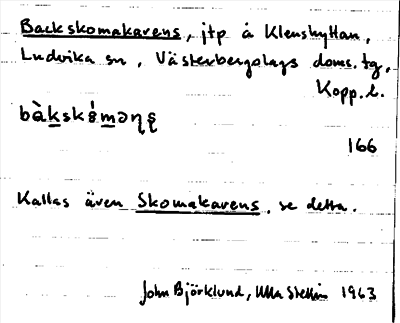 Backskomakarens, jtp å Klenshyttan,
Ludvika sn, Västerbergslags doms. tg,
Kopp. l.
bàkskómənş
166
Kallas även Skomakarens, se detta.
John Björklund, Ulla Stellin 1963